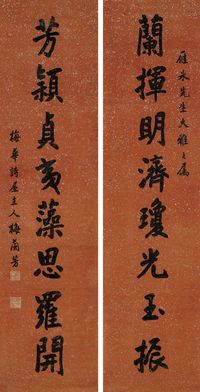 雁冰先生大雅之屬
蘭揮明濟瓊光玉振
芳穎貞夷藻思羅開
梅華詩屋主人梅蘭芳